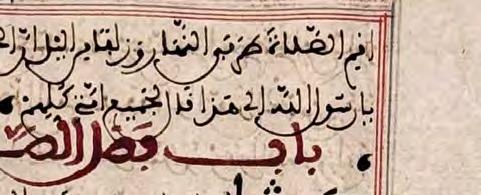 اقم الصلاة طرفي النهار وزلفا من اليل ان ال
يا رسول الله الى هذا قال لجميع امتي كلهم
باب فضل الص